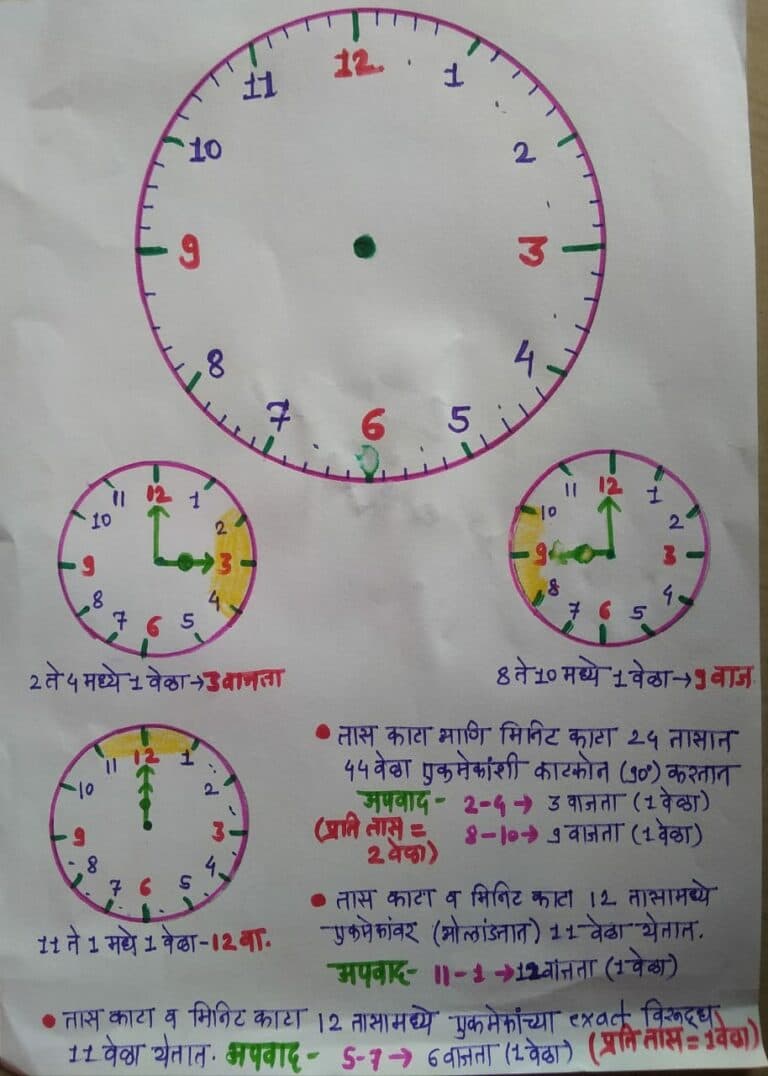 12
11 1
10 2
9 3
8 4
7 5
6
12
11 1
10 2
9 3
8 4
7 5
6
2 ते 4 मध्ये 1 वेळा → 3 वाजता
12
11 1
10 2
9 3
8 4
7 5
6
8 ते 10 मध्ये 1 वेळा → 9 वाज
12
11 1
10 2
9 3
8 4
7 5
6
11 ते 1 मधे 1 वेळा - 12 वा.
• तास काटा आणि मिनिट काटा 24 तासात
44 वेळा एकमेकांशी काटकोन (90°) करतात
अपवाद - 2-4 → 3 वाजता (1 वेळा)
(प्रति तास = 8-10 → 9 वाजता (1 वेळा)
2 वेळा)
• तास काटा व मिनिट काटा 12 तासामध्ये
एकमेकांवर (ओलांडतात) 11 वेळा येतात.
अपवाद - 11-1 → 12 वाजता (1 वेळा)
• तास काटा व मिनिट काटा 12 तासामध्ये एकमेकांच्या exact विरूद्ध
11 वेळा येतात. अपवाद - 5-7 → 6 वाजता (1 वेळा) (प्रति तास = 1 वेळा)